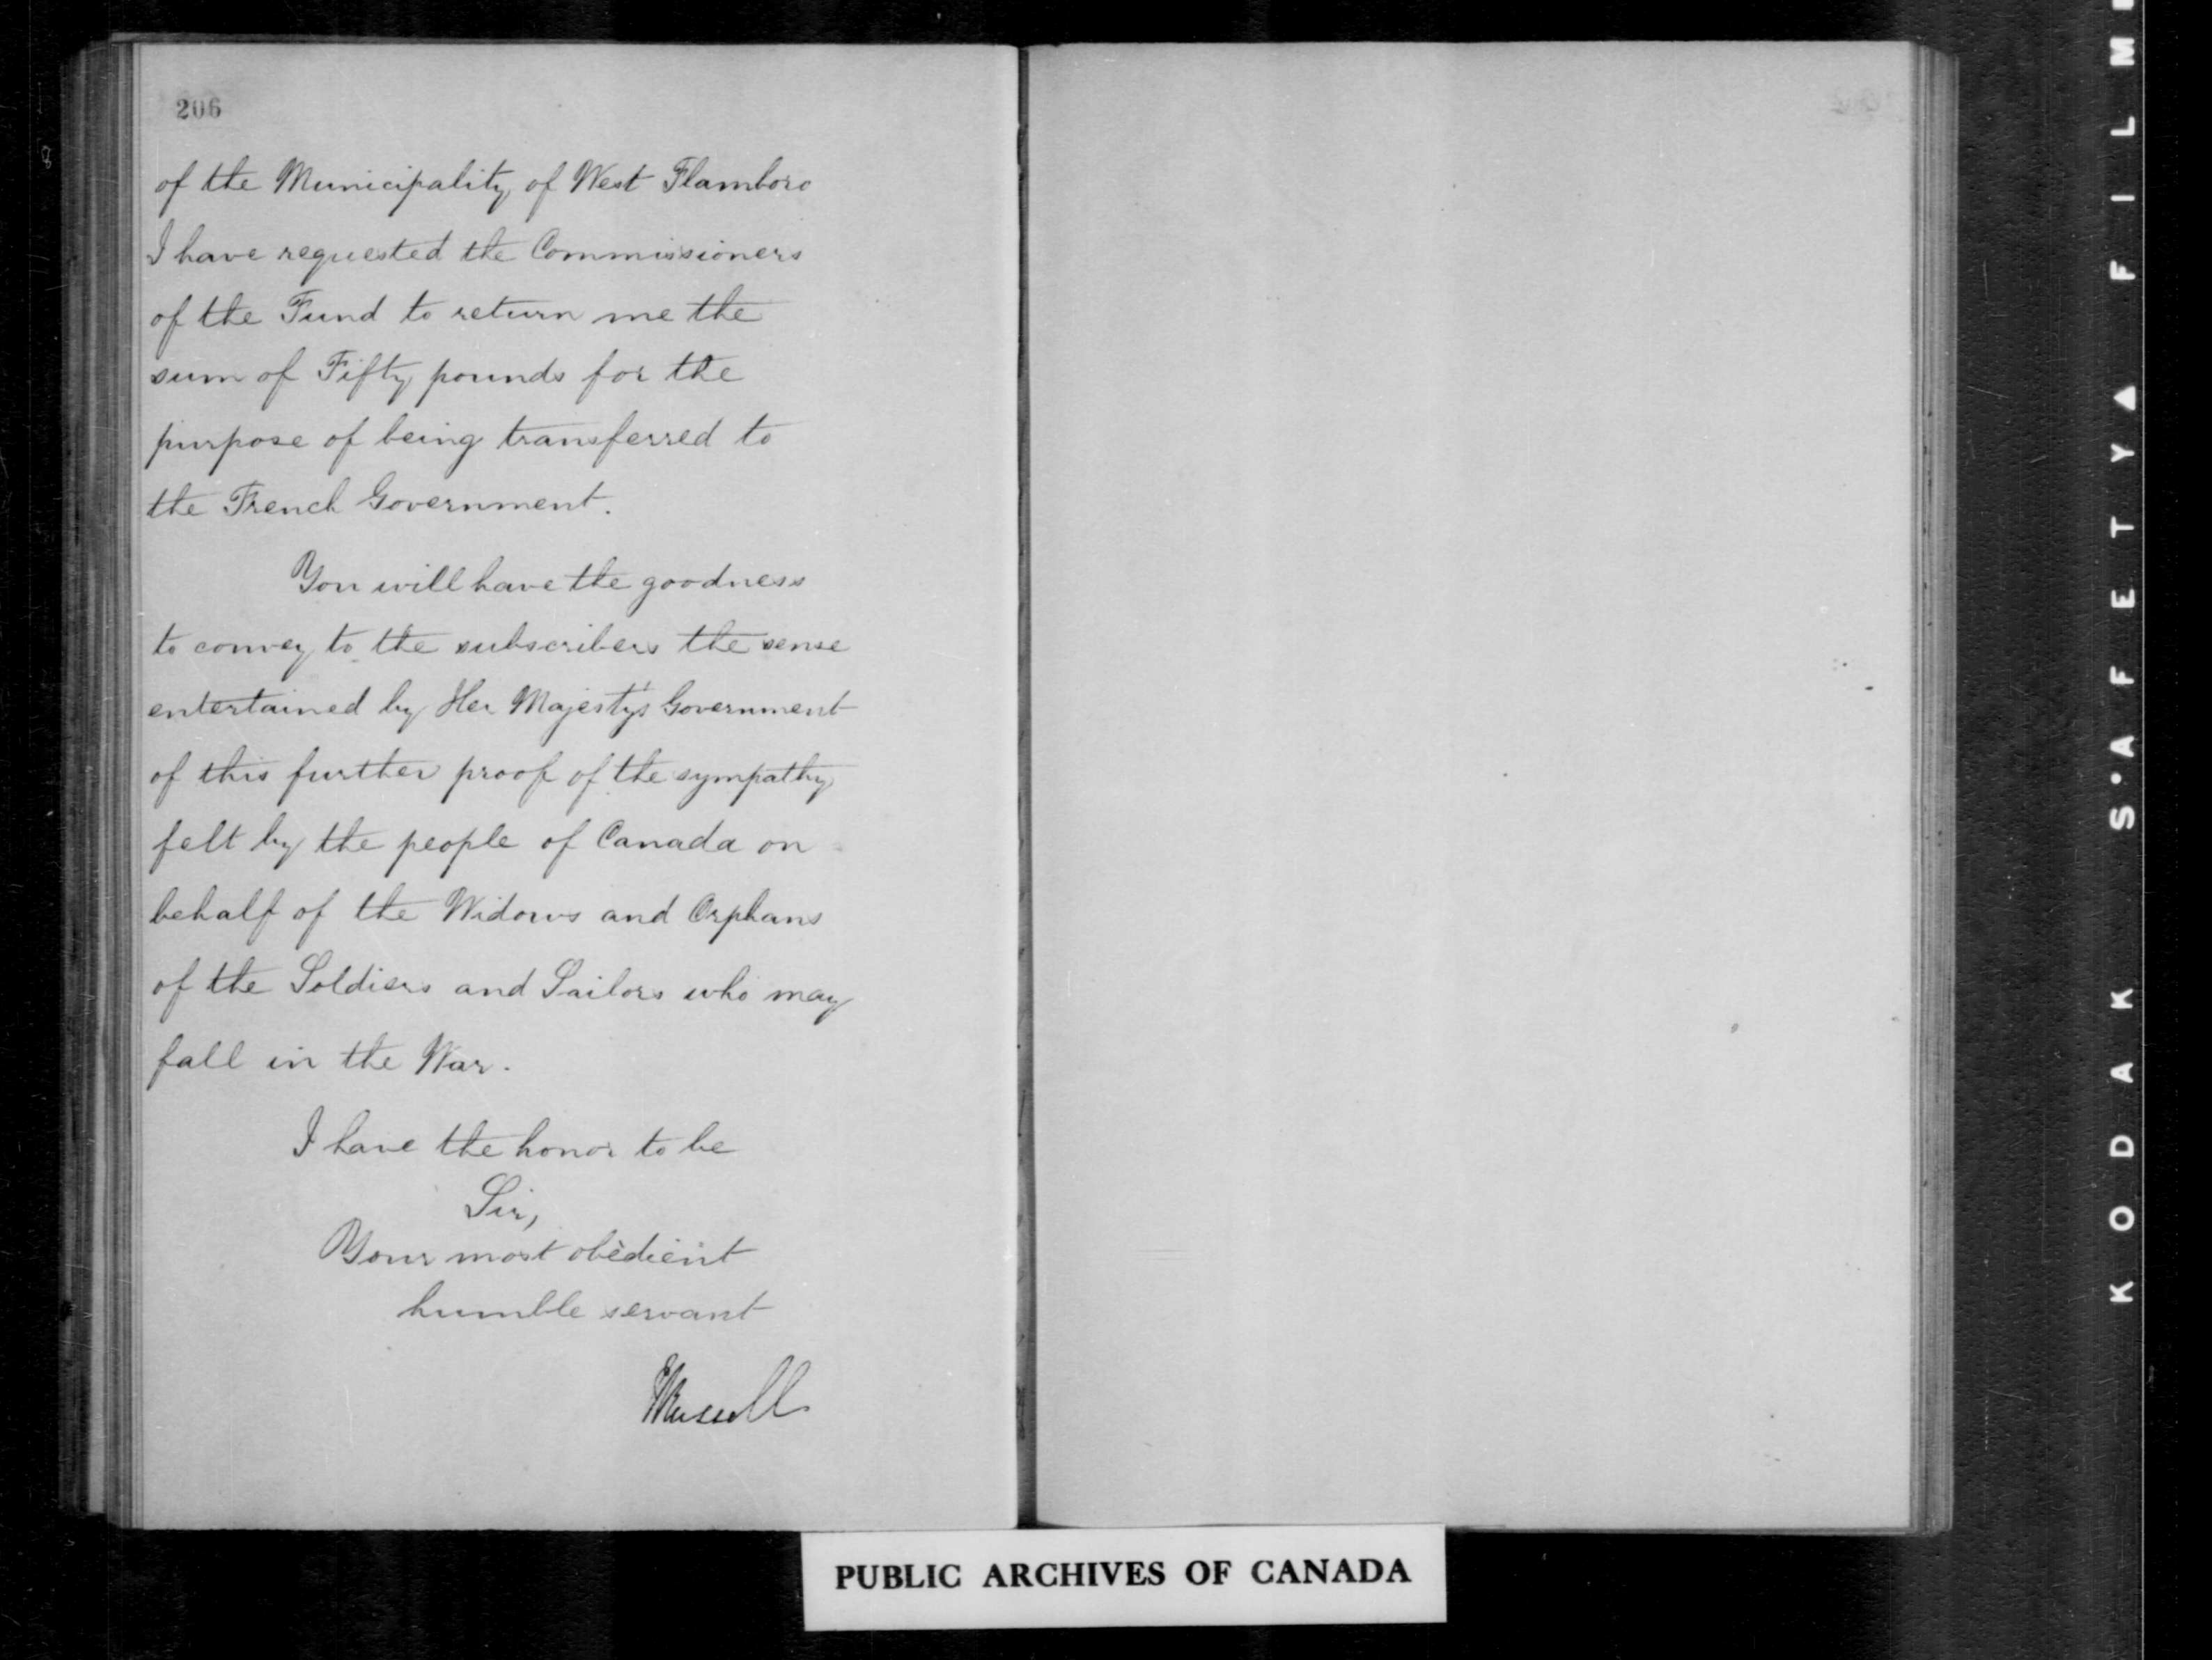 206
of the Municipality of West Flamboro
I have requested the Commissioners
of the Fund to return me the
sum of Fifty pounds for the
purpose of being transferred to
the French Government.
You will have the goodness
to convey to the subscribers the sense
entertained by Her Majesty's Government
of this further proof of the sympathy
felt by the people of Canada on
behalf of the Widows and Orphans
of the Soldiers and Sailors who may
fall in the War.
I have the honor to be
Sir,
Your most obedient
humble servant
PUBLIC ARCHIVES OF CANADA
KODAK S'AFETY▲ FILM